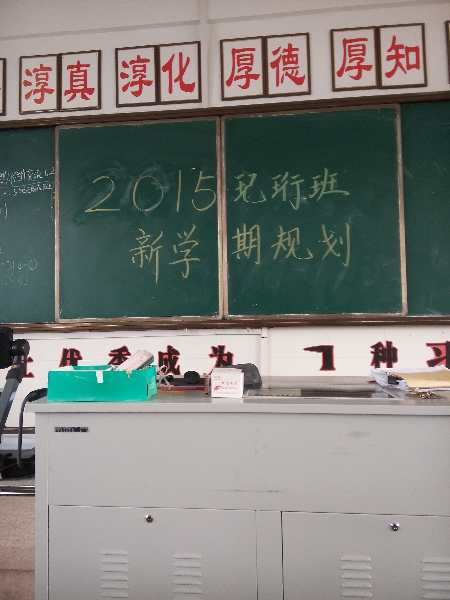 淳真 淳化 厚德 厚知
2015 珩班
新学期规划
优秀成为一种习